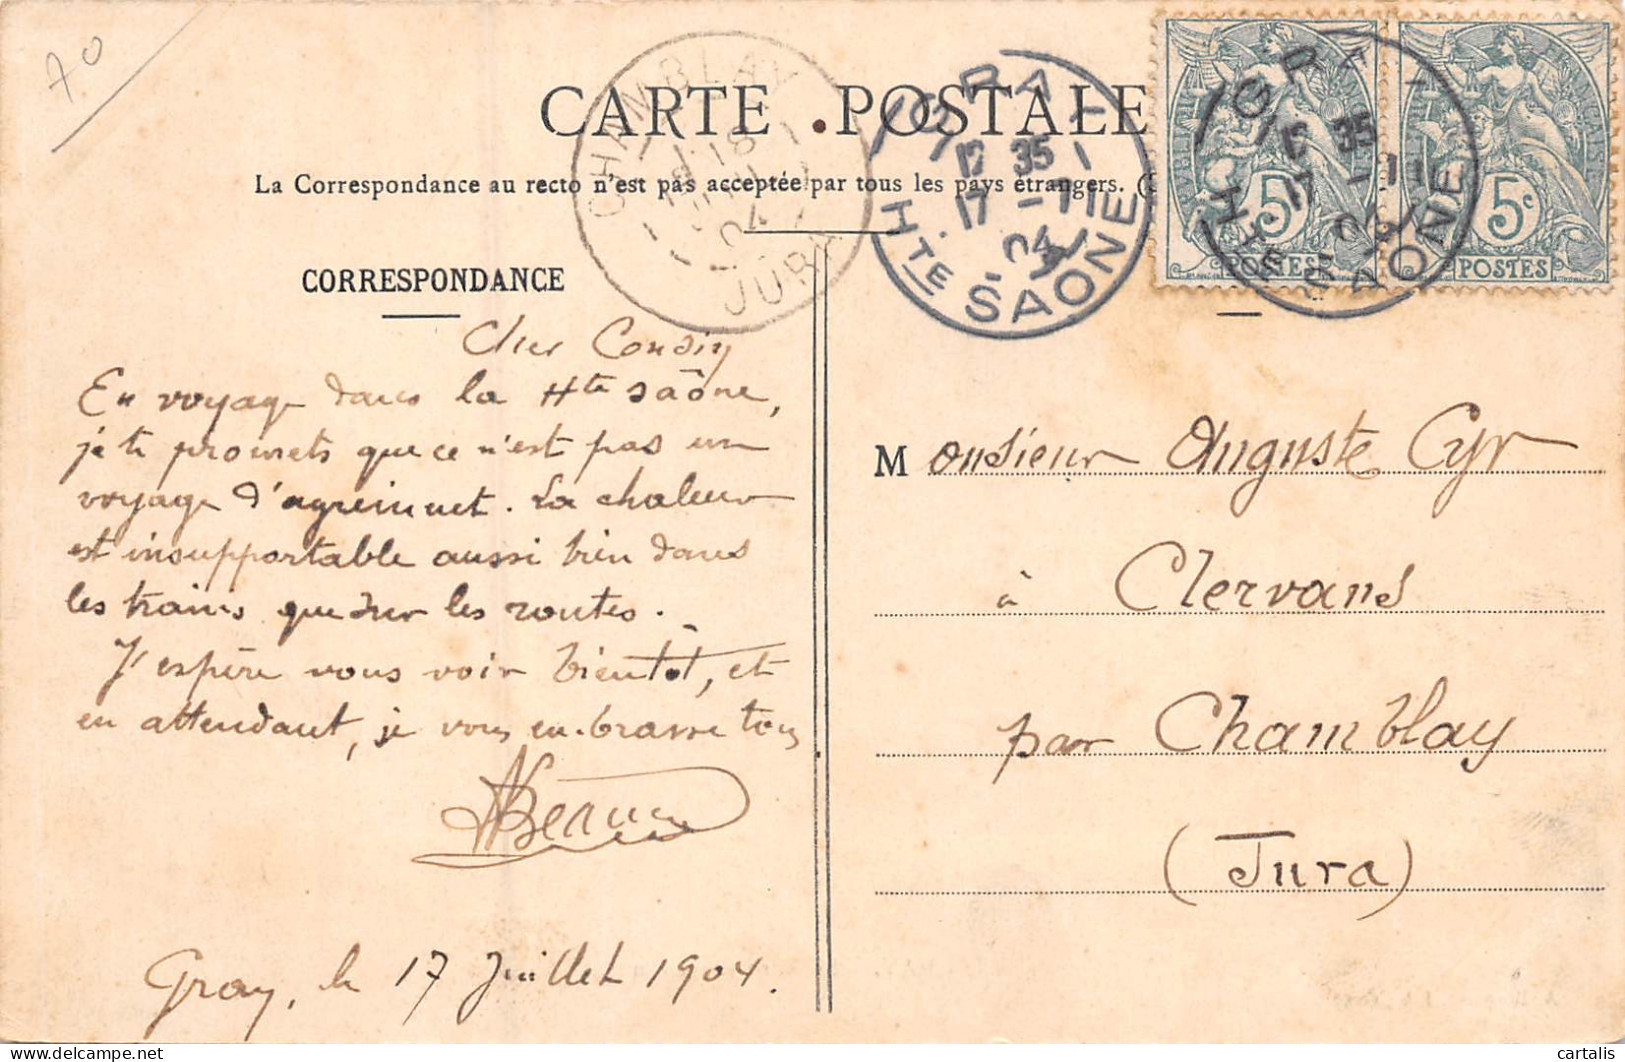 70
CARTE POSTALE
La Correspondance au recto n'est pas acceptée par tous les pays étrangers.
CORRESPONDANCE
CHAMBLAY
18
04
JURA
GRAY
12 35
17 - 7
04
Hte SAONE
GRAY
12 35
17
04
Hte SAONE
5c
POSTES
5c
POSTES
Cher Cousin
En voyage dans la Hte Saône,
je te promets que ce n'est pas un
voyage d'agrément. La chaleur
est insupportable aussi bien dans
les trains que sur les routes.
J'espère vous voir bientôt, et
en attendant, je vous embrasse tous
Gray, le 17 Juillet 1904.
Monsieur Auguste Cyr
à Clervans
par Chamblay
(Jura)
cartalis